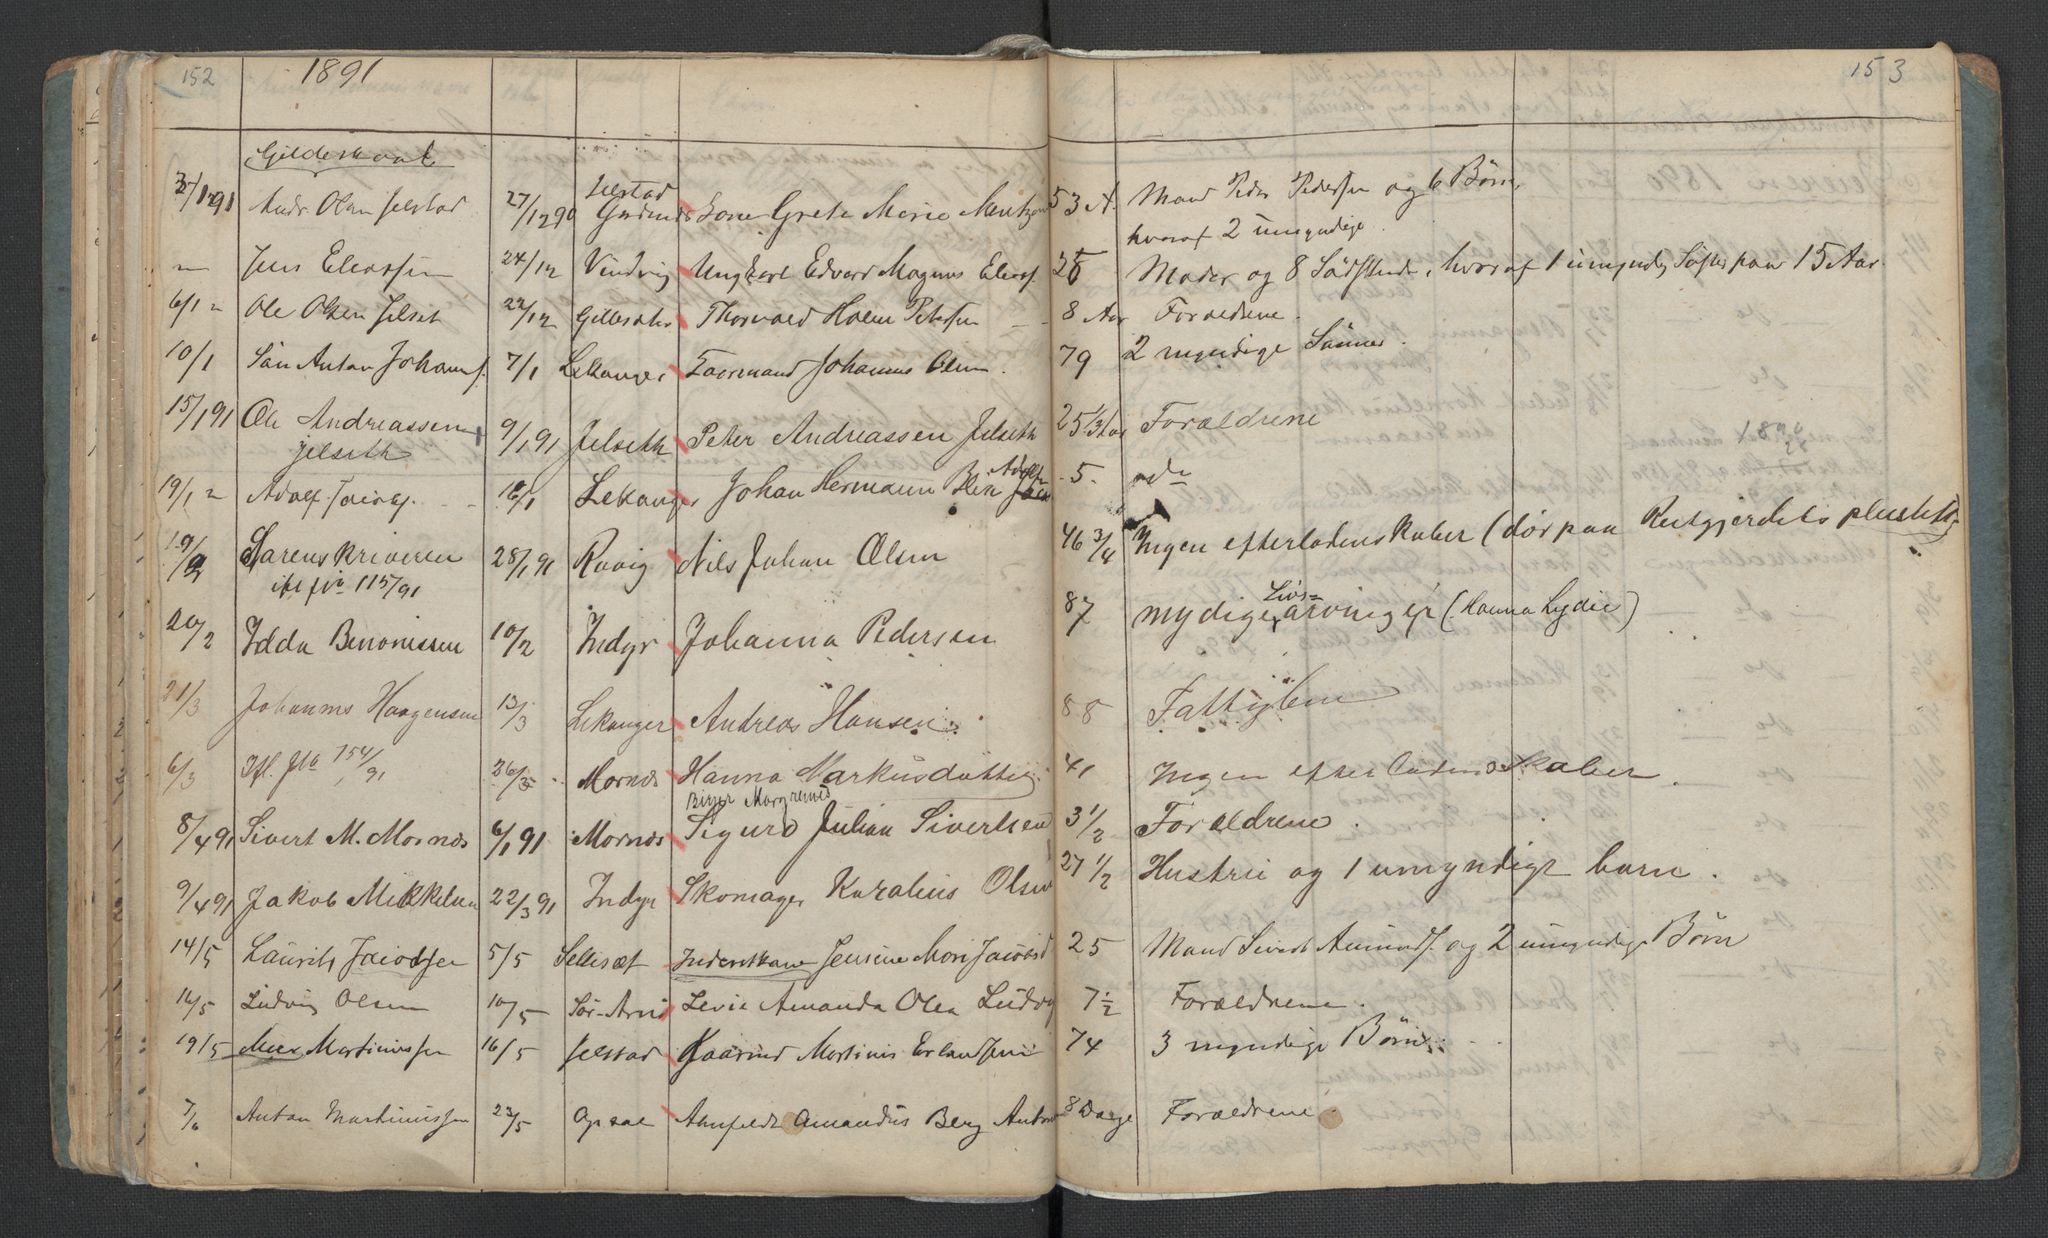 152 1891 153
Gildeskaal
Andr Olsen Jelstad 27/12 90 Jelstad Kone Grete Marie 53 A. Mand Peder Pedersen og 6 Børn,
hvoraf 2 umyndige.
" Jens Eliassen 24/12 Vindvig Ungkarl Edvard Magnus Eliass. Moder og 8 Södskende, hvoraf 1 umyndig Søster paa 15 Aar.
6/1 " Ole Olsen Jelset 22/12 Thorvald Holm Petersen 8 Aar Foraeldrene.
10/1 Sön Anton Johans. 7/1 Lekanger Foormand Johannes Olsen. 79 2 myndige Sönner.
15/1 91 Ole Andreassen Jelseth 9/1 91 Jelseth Peter Andreassen Jelseth 25 1/3 Aar Forældrene
19/1 " Adolf 16/1 Lekanger Johan Hermann Adolfs 5. do
19/2 Sorenskriveren 28/1 91 Rovig Nils Johan Olsen 46 3/4 Ingen efterladenskaber (dør paa
ifl jr 115/91
20/2 Idda Benonissen 10/2 Indyr Johanna Pedersen 87 mydige Livs= arvinger (Hanna Lydie)
21/3 Johannes Haagensen 13/3 Lekanger Andreas Hansen. 88 Fattiglem
6/3 Ifl. 154/91 26/3 Mornes Hanna Markusdatter. 41 Ingen efterladenskaber.
8/4 91 Sivert M. Mornes 6/1 91 Mornes Birger Sigurd Julian Sivertsen 3 1/2 Forældrene.
9/4 91 Jakob Mikkelsen 22/3 91 Indyr Skomager Karalius Olsen 27 1/2 Hustru og 1 umyndigt barn.
14/5 Laurits 5/5 Jensine Mari 25 Mand Sivert og 2 umyndige Børn
16/5 Ludvig Olsen 10/5 Sör-Arnö Levie Amanda Olea Ludv 7 1/2 Forældrene.
19/5 Martinussen 16/5 Jelstad Martinus Erlandsen 74 3 myndige Børn.
7/6 Anton Martinussen 23/5 Opsal Amandus Berg Anton 8 Dage Forældrene.